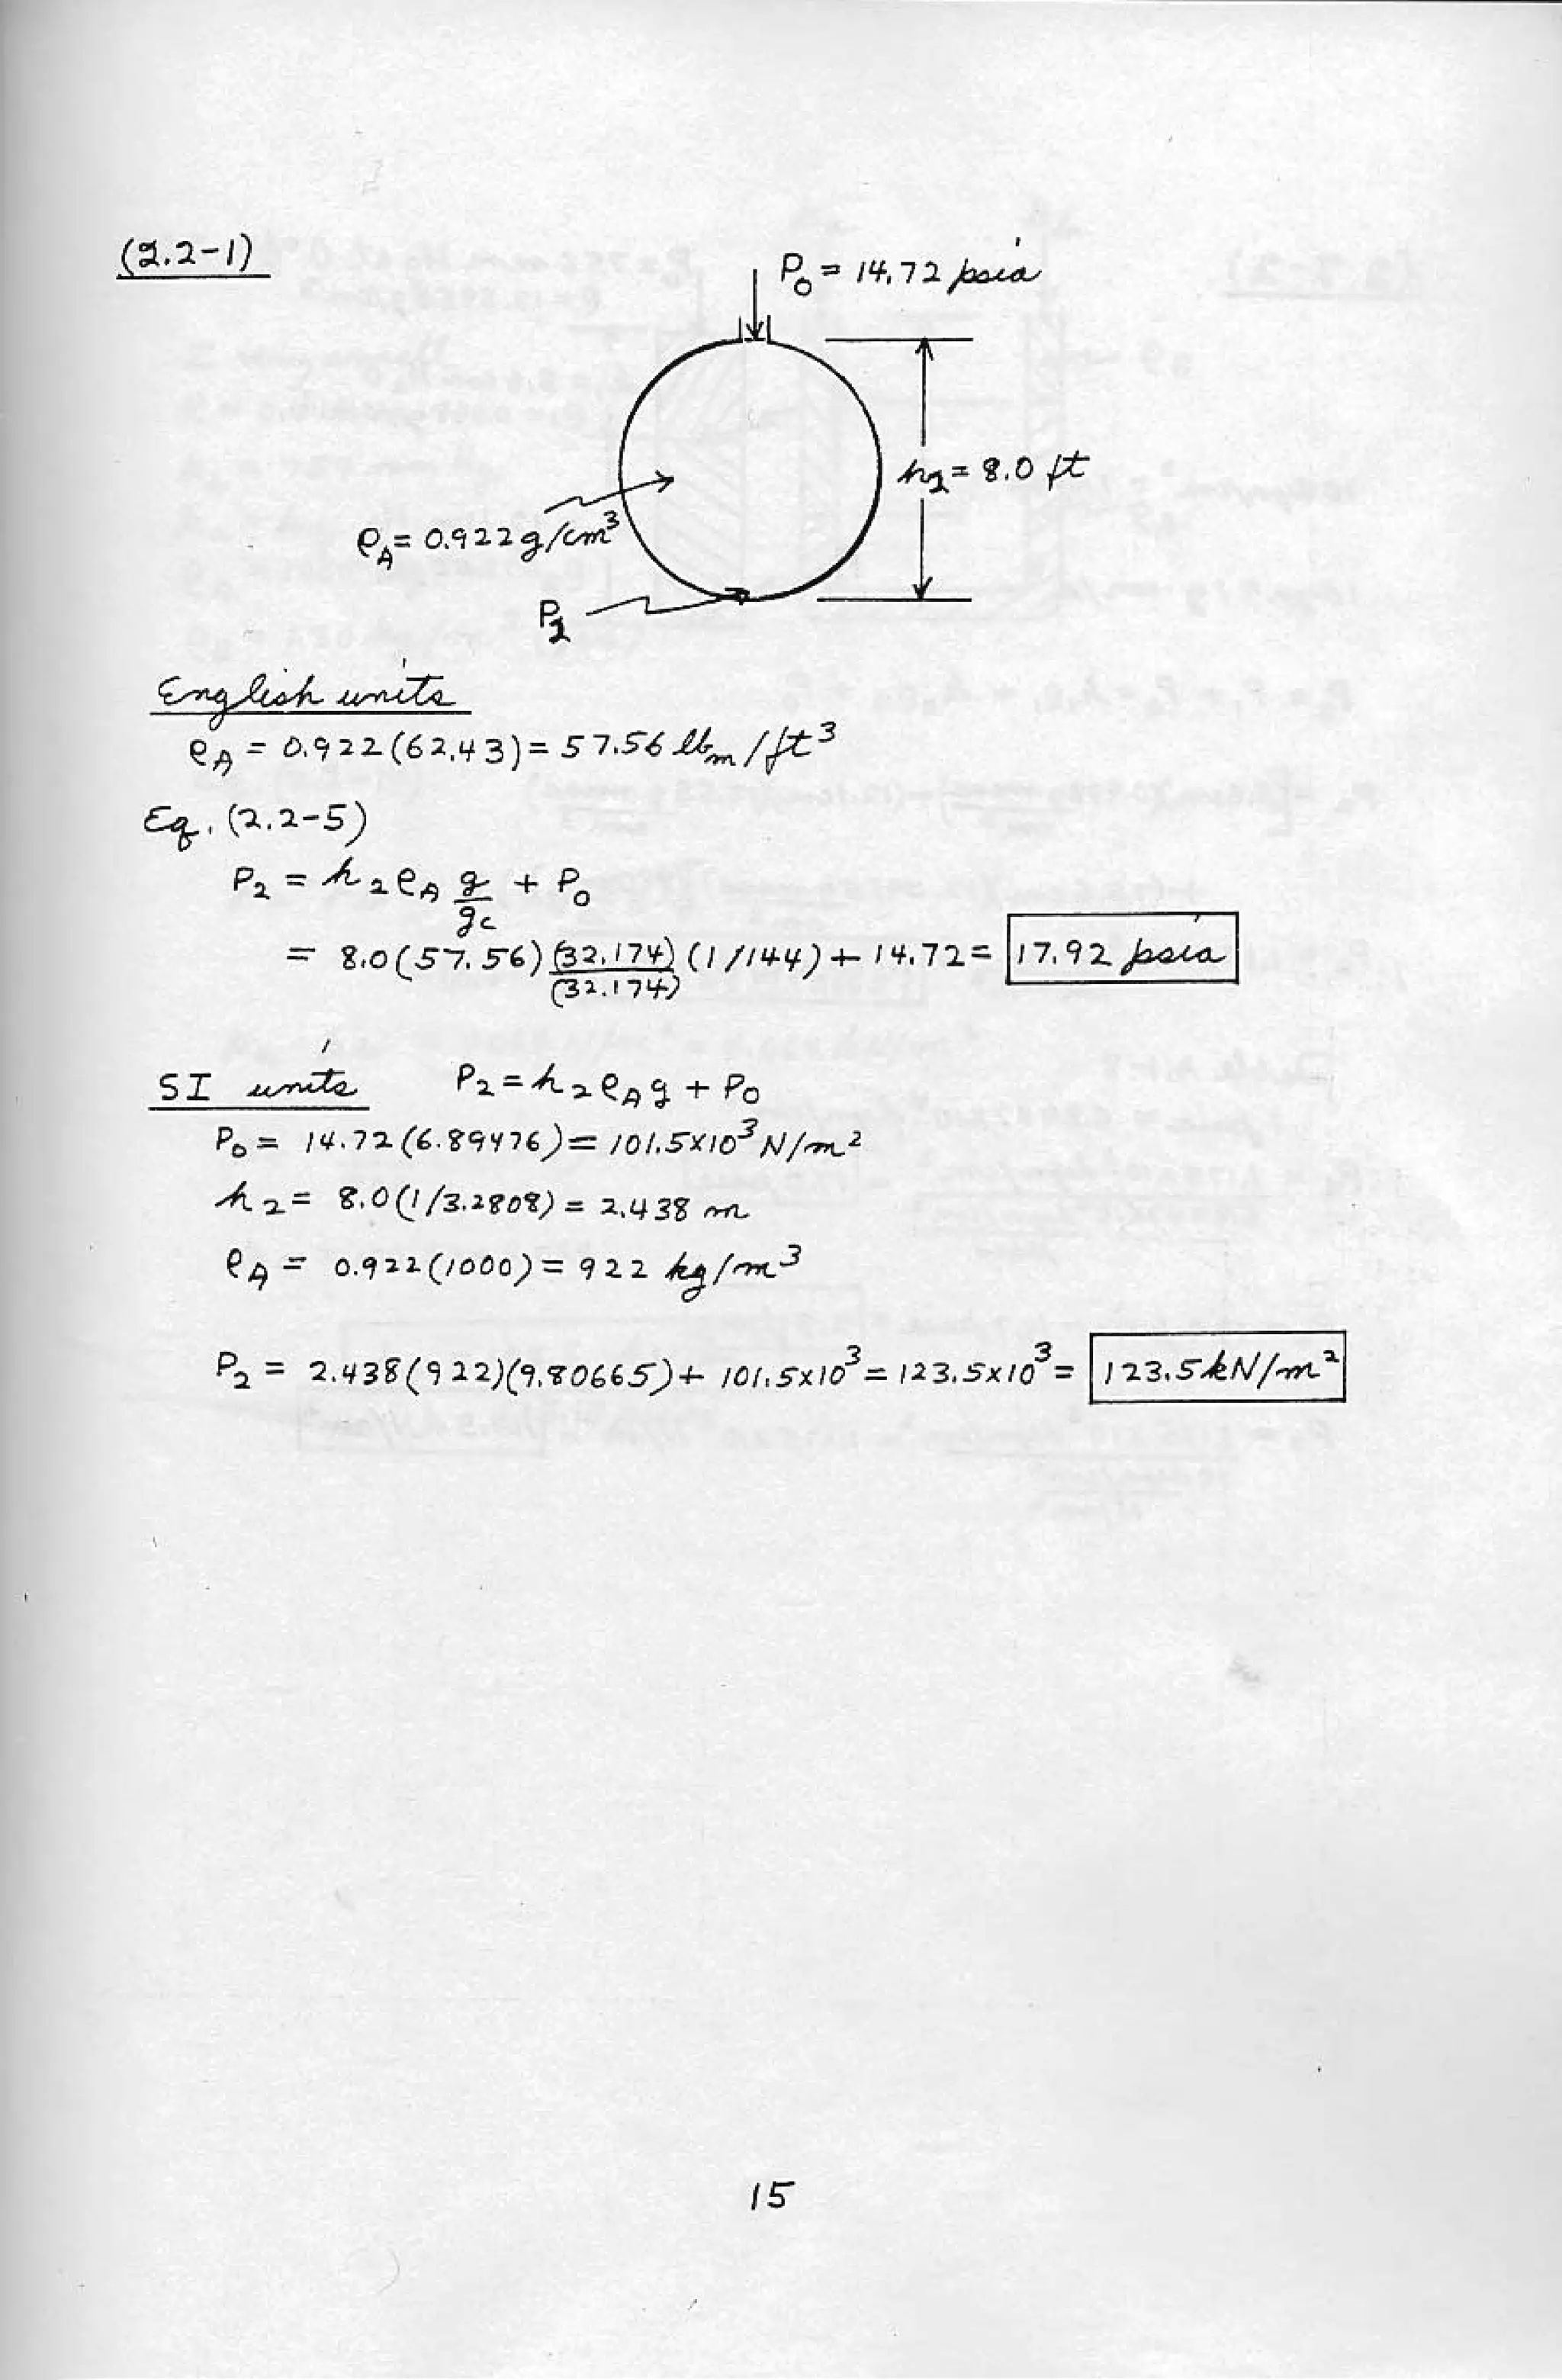 (2.2-1)
P₀ = 14.72 psia
h₂ = 8.0 ft
ρ_A = 0.922 g/cm³
P₂
English units
ρ_A = 0.922(62.43) = 57.56 lbm/ft³
Eq. (2.2-5)
P₂ = h₂ρ_A g/gc + P₀
= 8.0(57.56) (32.174)/(32.174) (1/144) + 14.72 = 17.92 psia
SI units P₂ = h₂ρ_A g + P₀
P₀ = 14.72(6.89476) = 101.5×10³ N/m²
h₂ = 8.0(1/3.2808) = 2.438 m
ρ_A = 0.922(1000) = 922 kg/m³
P₂ = 2.438(922)(9.80665) + 101.5×10³ = 123.5×10³ = 123.5 kN/m²
15